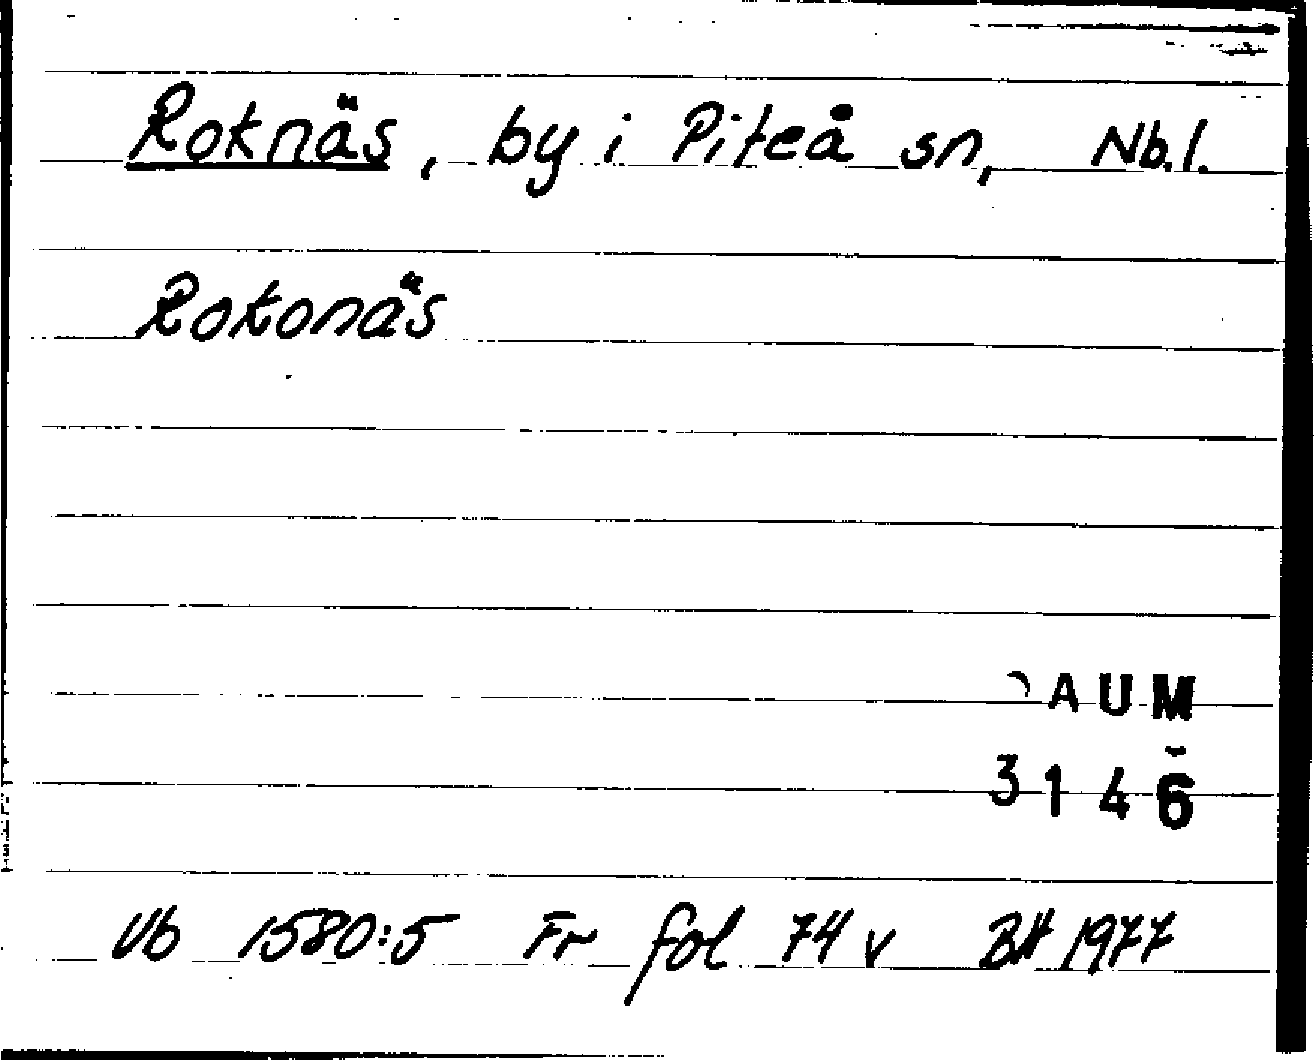 Roknäs, by i Piteå sn, Nb.l.
Rokonäs
AUM
3146
Vb 1580:5 Fr fol 74 v BH 1977